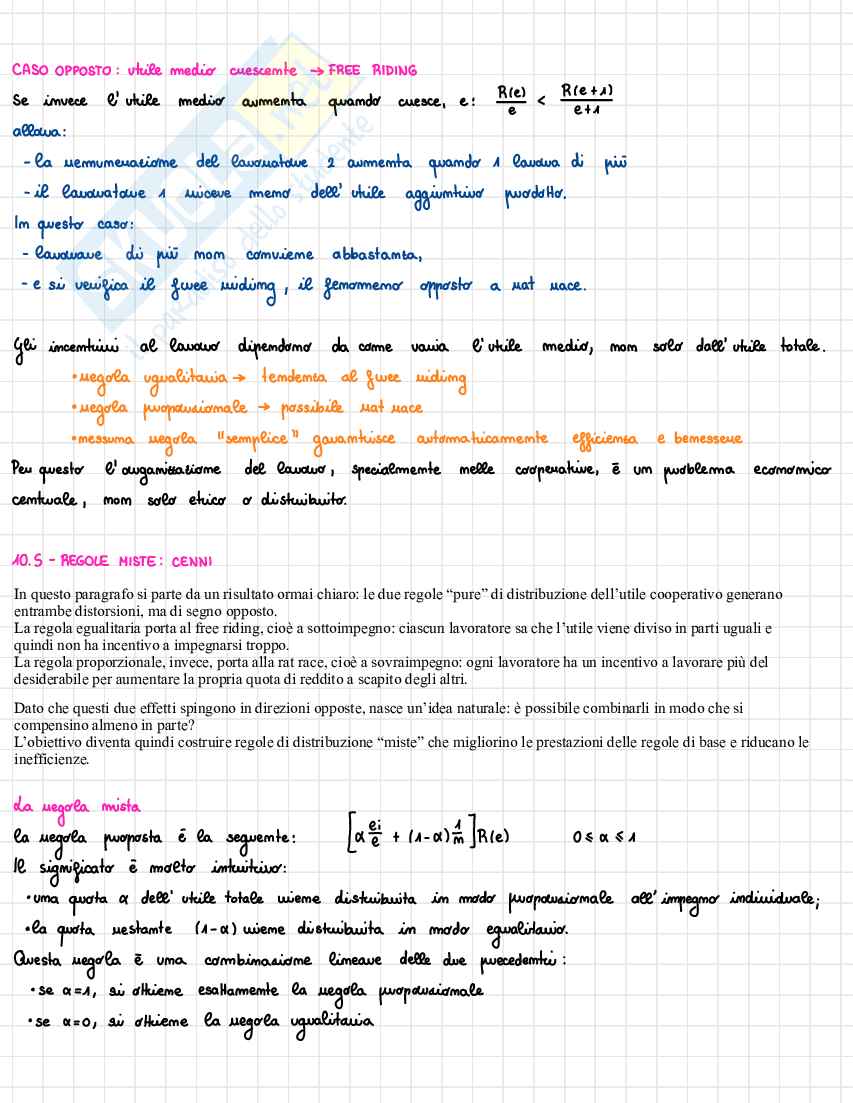 CASO OPPOSTO: utile medio crescente → FREE RIDING
Se invece l'utile medio aumenta quando cresce, e: R(e)/e < R(e+1)/e+1
allora:
- la remunerazione del lavoratore 2 aumenta quando 1 lavora di più
- il lavoratore 1 riceve meno dell'utile aggiuntivo prodotto.
In questo caso:
- lavorare di più non conviene abbastanza,
- e si verifica il free riding, il fenomeno opposto a rat race.
Gli incentivi al lavoro dipendono da come varia l'utile medio, non solo dall'utile totale.
• regola ugualitaria → tendenza al free riding
• regola proporzionale → possibile rat race
• nessuna regola "semplice" garantisce automaticamente efficienza e benessere
Per questo l'organizzazione del lavoro, specialmente nelle cooperative, è un problema economico
centrale, non solo etico o distributivo.
10.5 - REGOLE MISTE: CENNI
In questo paragrafo si parte da un risultato ormai chiaro: le due regole “pure” di distribuzione dell’utile cooperativo generano
entrambe distorsioni, ma di segno opposto.
La regola egualitaria porta al free riding, cioè a sottoimpegno: ciascun lavoratore sa che l’utile viene diviso in parti uguali e
quindi non ha incentivo a impegnarsi troppo.
La regola proporzionale, invece, porta alla rat race, cioè a sovraimpegno: ogni lavoratore ha un incentivo a lavorare più del
desiderabile per aumentare la propria quota di reddito a scapito degli altri.
Dato che questi due effetti spingono in direzioni opposte, nasce un’idea naturale: è possibile combinarli in modo che si
compensino almeno in parte?
L’obiettivo diventa quindi costruire regole di distribuzione “miste” che migliorino le prestazioni delle regole di base e riducano le
inefficienze.
La regola mista
la regola proposta è la seguente: [α ei/e + (1-α) 1/n] R(e) 0 ≤ α ≤ 1
Il significato è molto intuitivo:
• una quota α dell'utile totale viene distribuita in modo proporzionale all'impegno individuale;
• la quota restante (1-α) viene distribuita in modo egualitario.
Questa regola è una combinazione lineare delle due precedenti:
• se α=1, si ottiene esattamente la regola proporzionale
• se α=0, si ottiene la regola ugualitaria
SKUOLA.net
il paradiso dello studente